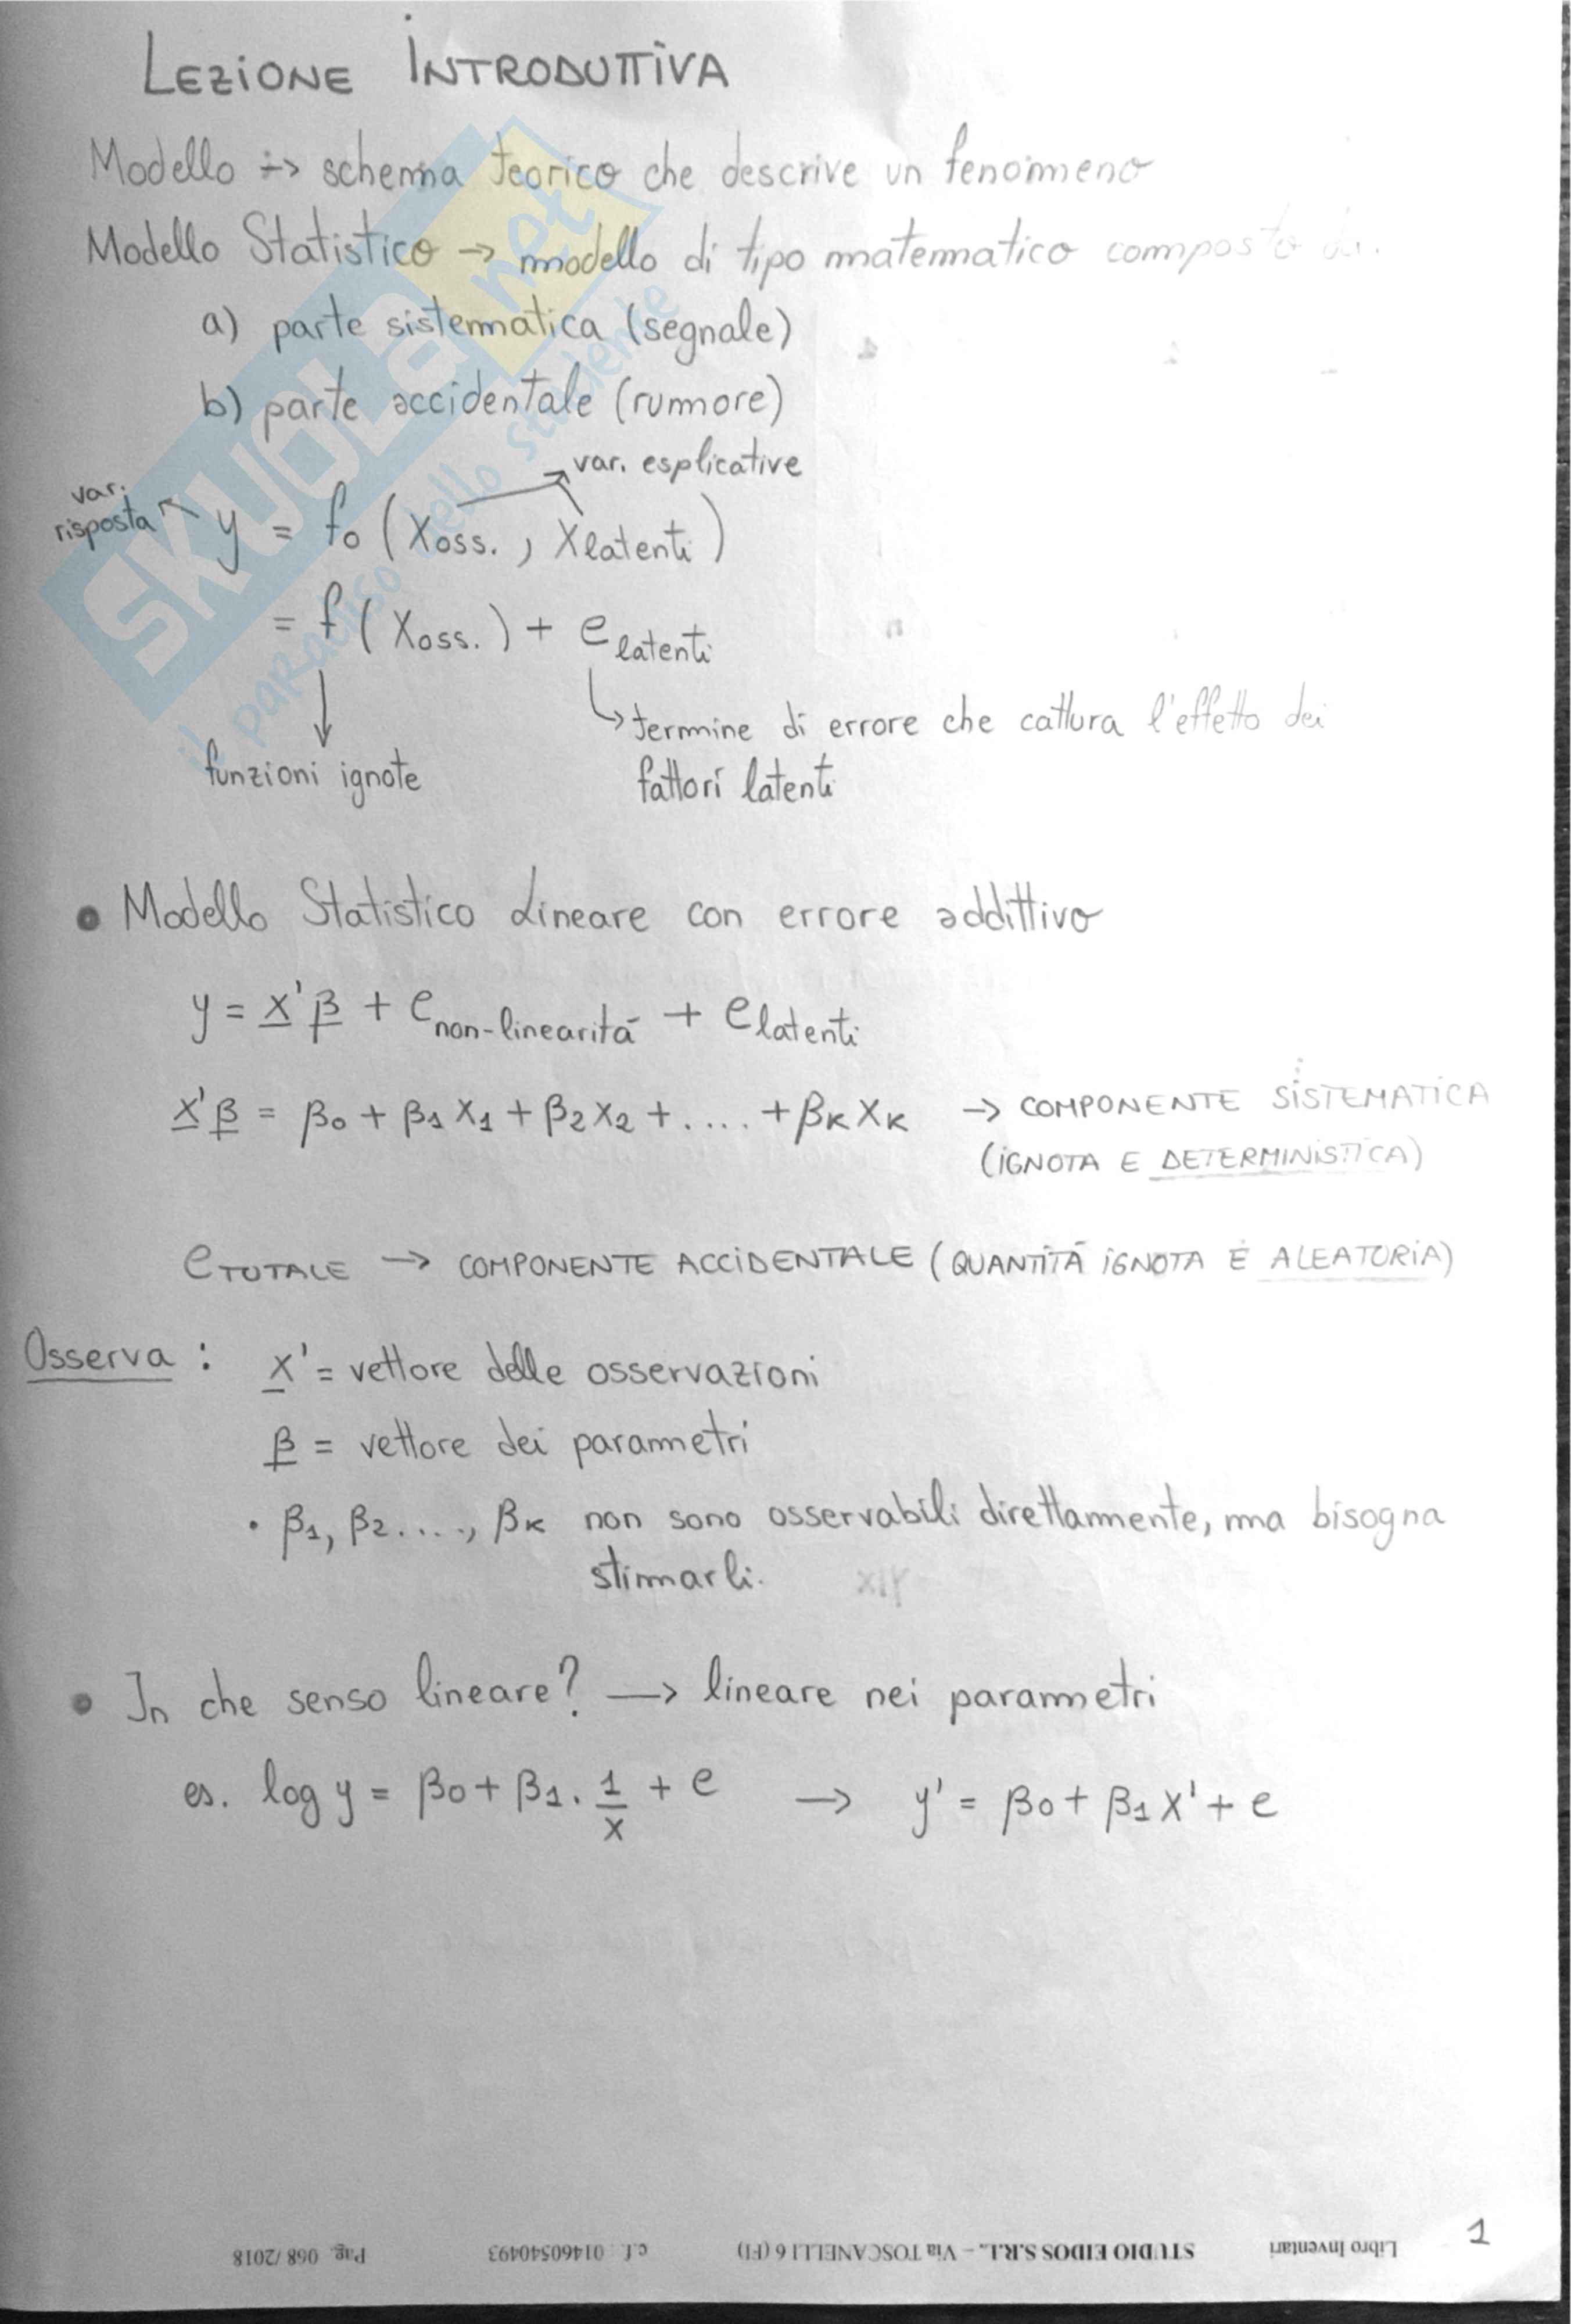 LEZIONE INTRODUTTIVA
Modello → schema teorico che descrive un fenomeno
Modello Statistico → modello di tipo matematico composto da:
a) parte sistematica (segnale)
b) parte accidentale (rumore)
var. esplicative
var. risposta
y = f₀ (X oss. , X latenti)
= f (X oss.) + e latenti
termine di errore che cattura l'effetto dei
funzioni ignote
fattori latenti
• Modello Statistico Lineare con errore addittivo
y = x'β + e non-linearitá + e latenti
x'β = β₀ + β₁ X₁ + β₂ X₂ + .... + βK XK → COMPONENTE SISTEMATICA
(IGNOTA E DETERMINISTICA)
e TOTALE → COMPONENTE ACCIDENTALE (QUANTITÁ IGNOTA E ALEATORIA)
Osserva : x' = vettore delle osservazioni
β = vettore dei parametri
• β₁, β₂ ...., βK non sono osservabili direttamente, ma bisogna
stimarli.
• In che senso lineare? → lineare nei parametri
es. log y = β₀ + β₁ · 1/x + e → y' = β₀ + β₁ X' + e
1
Libro Inventari STUDIO EIDOS S.R.L. – Via TOSCANELLI 6 (FI) c.f. 01460540493 Pag. 068/2018
SKUOLA.net
il paradiso dello studente